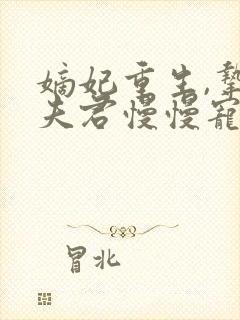 嫡妃重生,摯
夫君慢慢寵
冒北